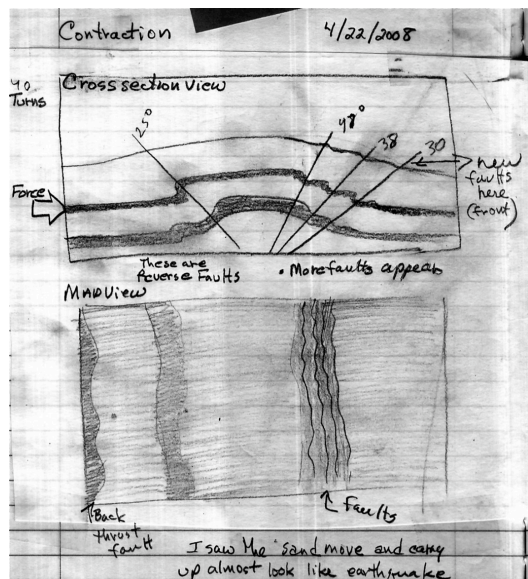 Contraction 4/22/2008
40 Turns
Cross section View
25°
48°
38
30
new faults here (front)
Force
These are Reverse Faults
• More faults appear
Map View
Back thrust fault
faults
I saw the sand move and
up almost look like earthquake